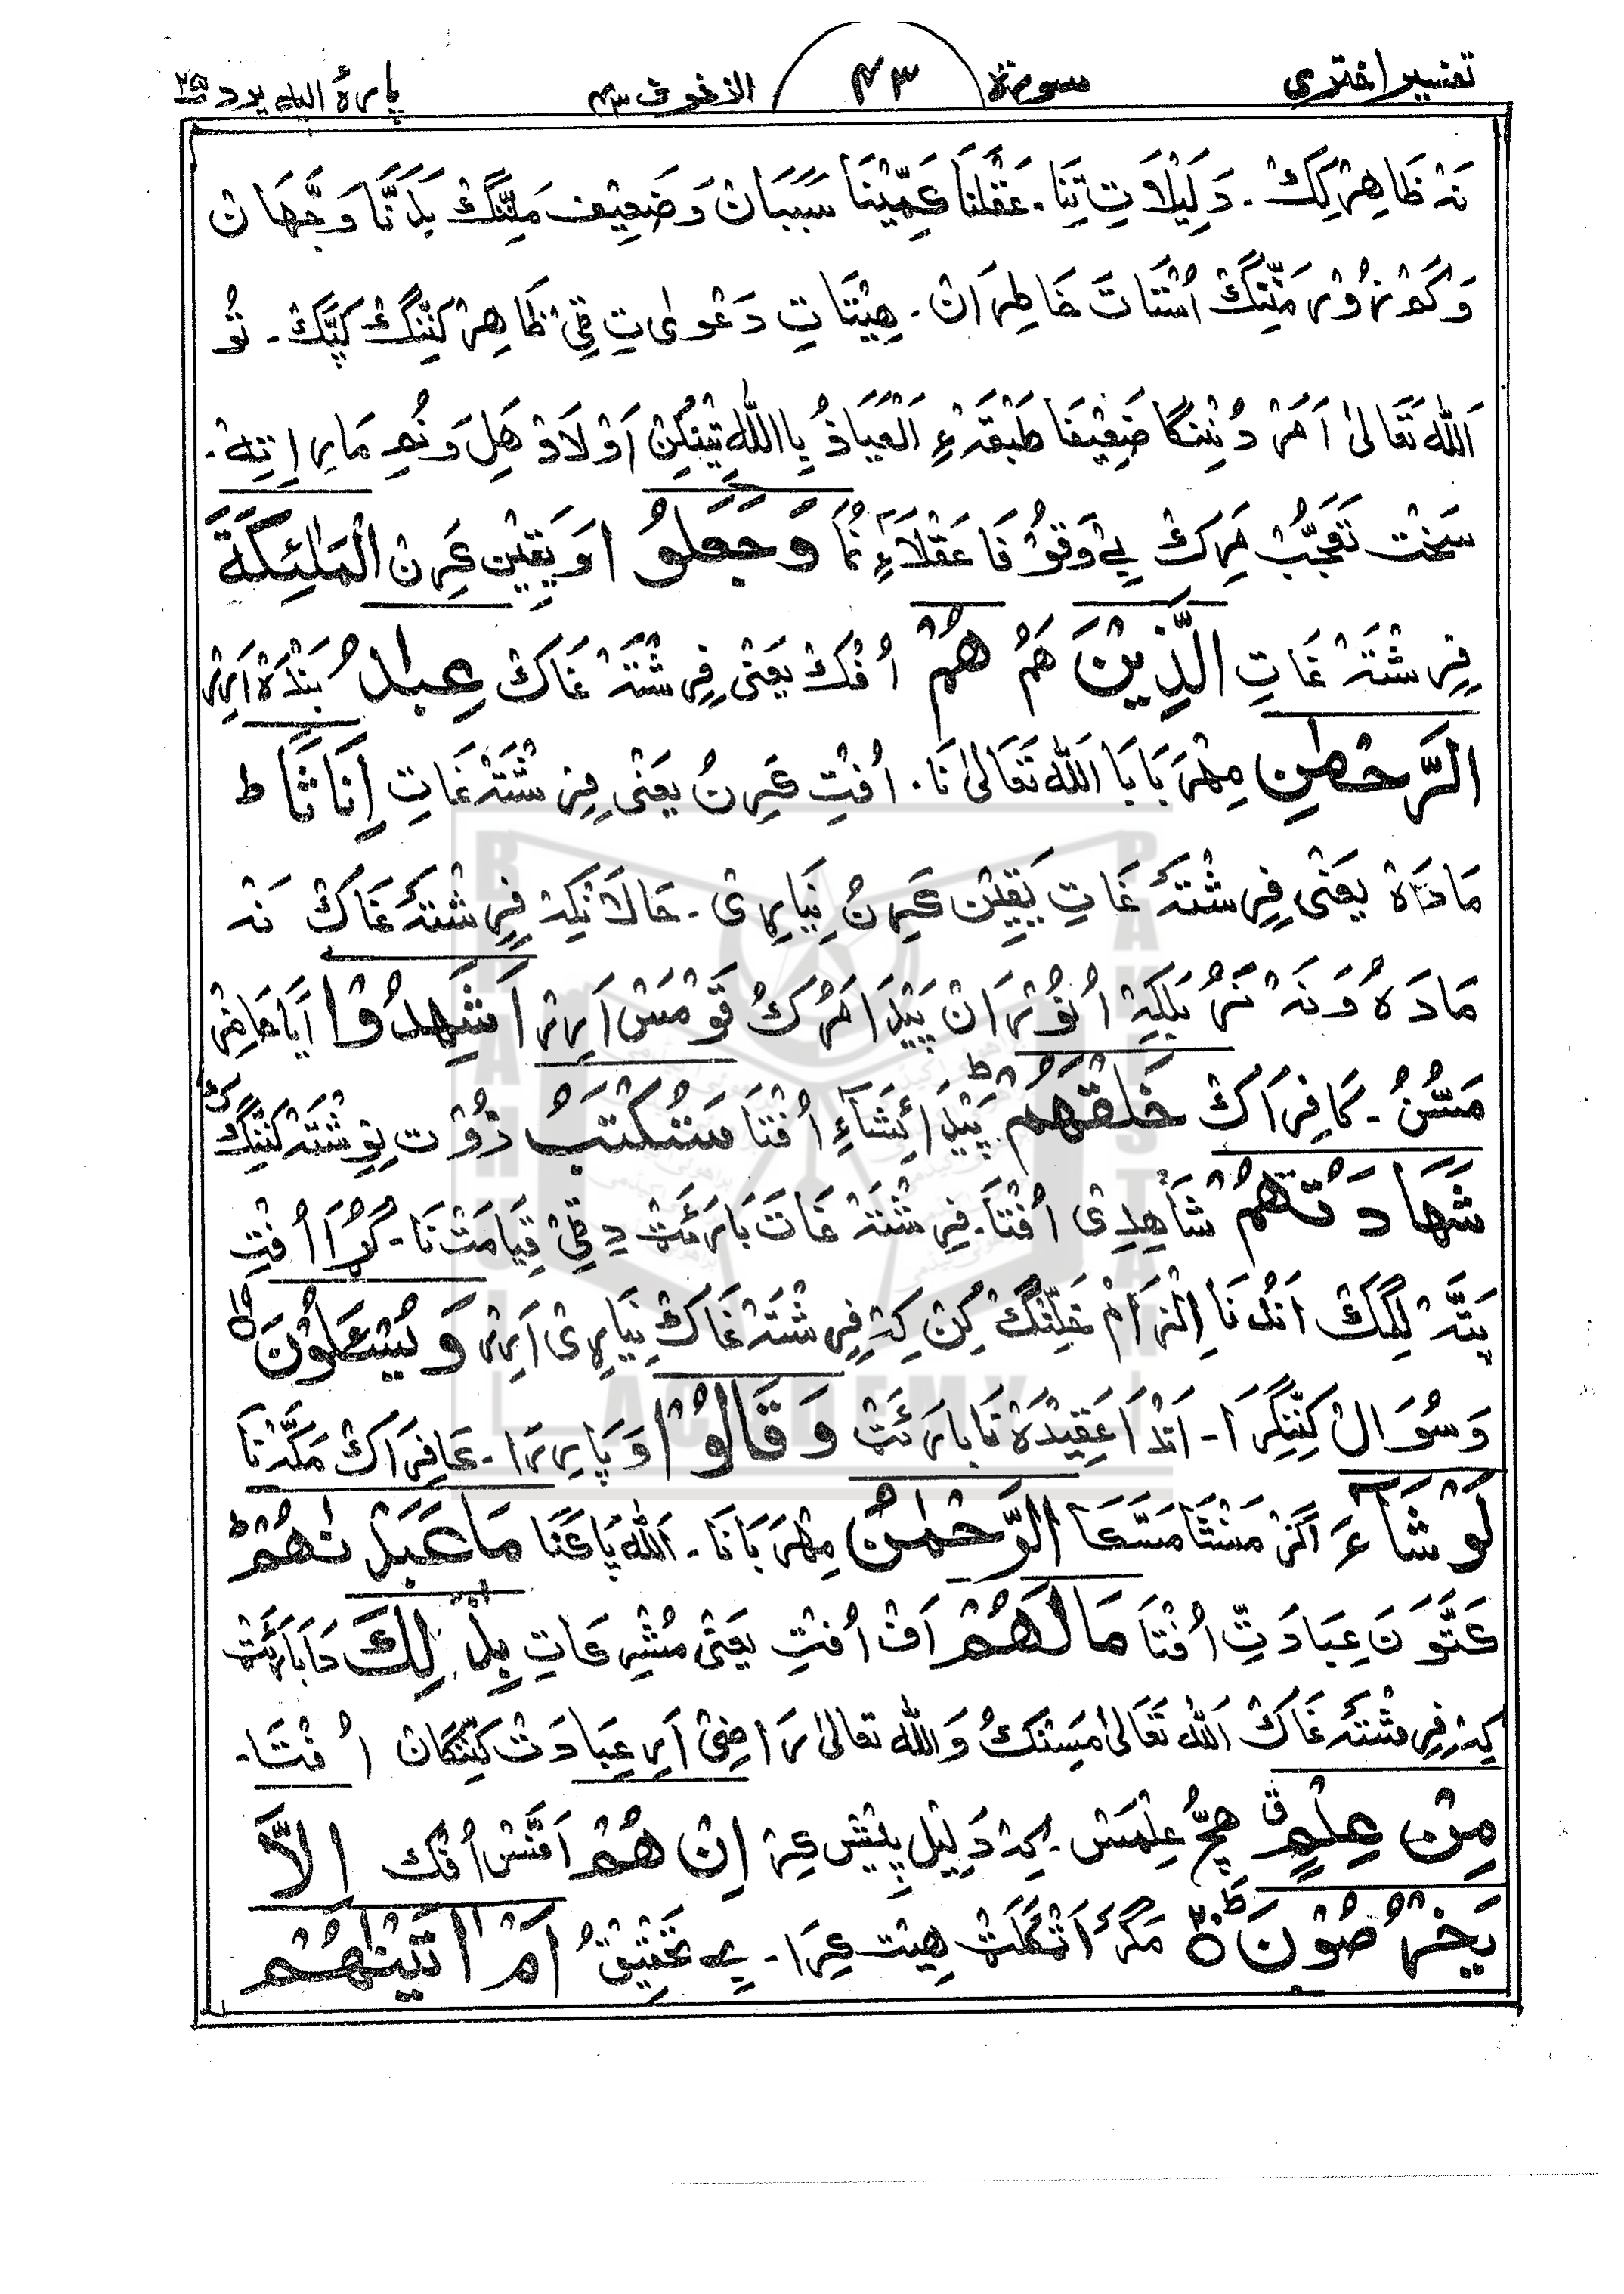 تفسیر اختری سورة ٤٣ الزخرف ٤٣ پارۀ الیه یرد ٢٥
نَہ ظَاہِر کِکْ۔ دَلِیْلَاتِ تِنَا۔ عَقْلنَا کَمِّیْنَا سَبَبَانْ وَضَعِیْف مَنِّنگْ بَدَنَّا وَجْہَانْ
وَکَمْزُوْر مَنِّنگْ اُسْتَاتَ خَاطِرَانْ۔ ہِیْتَاتِ دَعْویٰ تِ ٹِیْ ظَاہِرْ کَنِّنگْ کَپَّکْ۔ تُو
اَللّٰہ تَعَالیٰ اَمَرْ دُنْنگَا ضَعِیْفَا طَبْقَہ ءِ اَلْعَیَاذُ بِااللّٰہِ تِینکِنْ اَوْلَادْ ہَلَ وَنُمِ مَار اِتِہْ۔
سَخْت تَعَجُّبْ مَرِکْ بِےْ وَقُوْفَا عَقْلَاءِ نُمَا وَجَعَلُو ا وَیَقِیْن کَرِنْ الْمَلٰئِکَةَ
فِرِشْتَہ غَاتِ الَّذِیْنَ ہَمُ هُمْ اُفْکْ یَعْنی فِرِشْتَہ غَاکْ عِبٰدُ بَنْدَہ اَرِیْر
الرَّحْمٰنِ مِہْرَبَابَا اَللّٰہ تَعَالیٰ نَا۔ اُفْتِ کَرِنُ یَعْنی فِرِشْتَہ غَاتِ إِنَاثًا ط
مَادَہ یَعْنی فِرِشْتَہ غَاتِ یَقِیْن کَرِنُ نِیَارِی۔ حَالَانْکِہ فِرِشْتَہ غَاکْ نَہ
مَادَہُ وَنَہ نَرُ بَلکِہ اُ نُوْرَانْ پَیْدَا مَرُکْ قَوْمَسْ اَرِیْر اَشَهِدُوْا اَیَا حَاضِرْ
مَسُّنُ۔ کَافِرَاکْ خَلْقَهُمْ ط پَیْدَائِشَاءِ اُفْتَا سَتُکْتَبُ زُوْت نِوِشْتَہ کَنِّنگِکْ
شَهَادَتُهُمْ شَاہِدِی اُفْتَا۔ فِرِشْتَہ غَاتَ بَارَئَٹْ دِ ٹِیْ قِیَامَتْ نَا۔ گُڑَا اُفْتِ
پَتَّہ لَگِکْ اَنْدُنَا اِلْزَامْ خَلِّنگْ کِنْ کِہ فِرِشْتَہ غَاکْ نِیَارِی اَرِیْر وَیُسْئَلُوْنَ
وَسُوَالْ کَنِّنگِرَا۔ اَنْدَا عَقِیْدَہ نَا بَارَئَٹْ وَقَالُوْا وَپَارِیْرَا۔ کَافِرَاکْ مَکَّہْنَا
لَوْشَآءَ اَگَرْ مَنْشَا مَسَّکَا الرَّحْمٰنُ مِہْرَبَانَا۔ اَللّٰہ پَاکَنَا مَاعَبَدْنٰهُمْ ط
کَتَّوَنَ عِبَادَتِّ اُفْتَا مَالَهُمْ اَفْ اُفْتِ یَعْنی مُشْرِکَاتِ بِذٰلِكَ دَابَارَئَٹْ
کِہ فِرِشْتَہ غَاکْ اَللّٰہ تَعَالیٰ مَسِنْکْ وَاللّٰہ تعالیٰ رَاضِیْ اَرِ عِبَادَتْ کَنِّنگَانْ اُفْتَا۔
مِنْ عِلْمٍ ق ہِچُّ عِلْمَسْ۔ کِہ دَلِیْل پِیْش کِرْ اِنْ هُمْ اَفَّسْ اُفْکْ اِلَّا
یَخْرُصُوْنَ ط مَگَرْ اَٹْکَلَٹْ ہِیْت کِرَا۔ بِے تَحْقِیْقُ اَمْ اٰتَیْنٰهُمْ